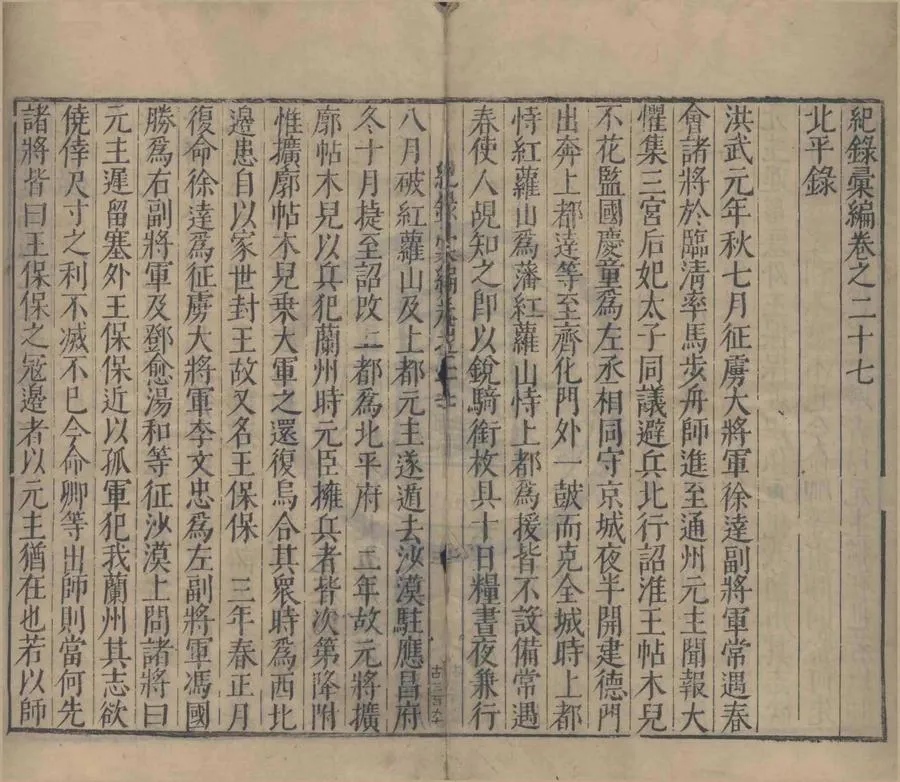 紀錄彙編卷之二十七
北平錄
洪武元年秋七月征虜大將軍徐達副將軍常遇春
會諸將於臨清率馬步舟師進至通州元主聞報大
懼集三宮后妃太子同議避兵北行詔淮王帖木兒
不花監國慶童爲左丞相同守京城夜半開建德門
出奔上都達等至齊化門外一皷而克全城時上都
恃紅蘿山爲藩紅蘿山恃上都爲援皆不設備常遇
春使人覘知之卽以銳騎銜枚具十日糧晝夜兼行
八月破紅蘿山及上都元主遂遁去沙漠駐應昌府
冬十月捷至詔改上都爲北平府 二年故元將擴
廓帖木兒以兵犯蘭州時元臣擁兵者皆次第降附
惟擴廓帖木兒乗大軍之還復烏合其衆時爲西北
邊患自以家世封王故又名王保保 三年春正月
復命徐達爲征虜大將軍李文忠爲左副將軍馮國
勝爲右副將軍及鄧愈湯和等征沙漠上問諸將曰
元主遲留塞外王保保近以孤軍犯我蘭州其志欲
僥倖尺寸之利不滅不已今命卿等出師則當何先
諸將皆曰王保保之冦邊者以元主猶在也若以師